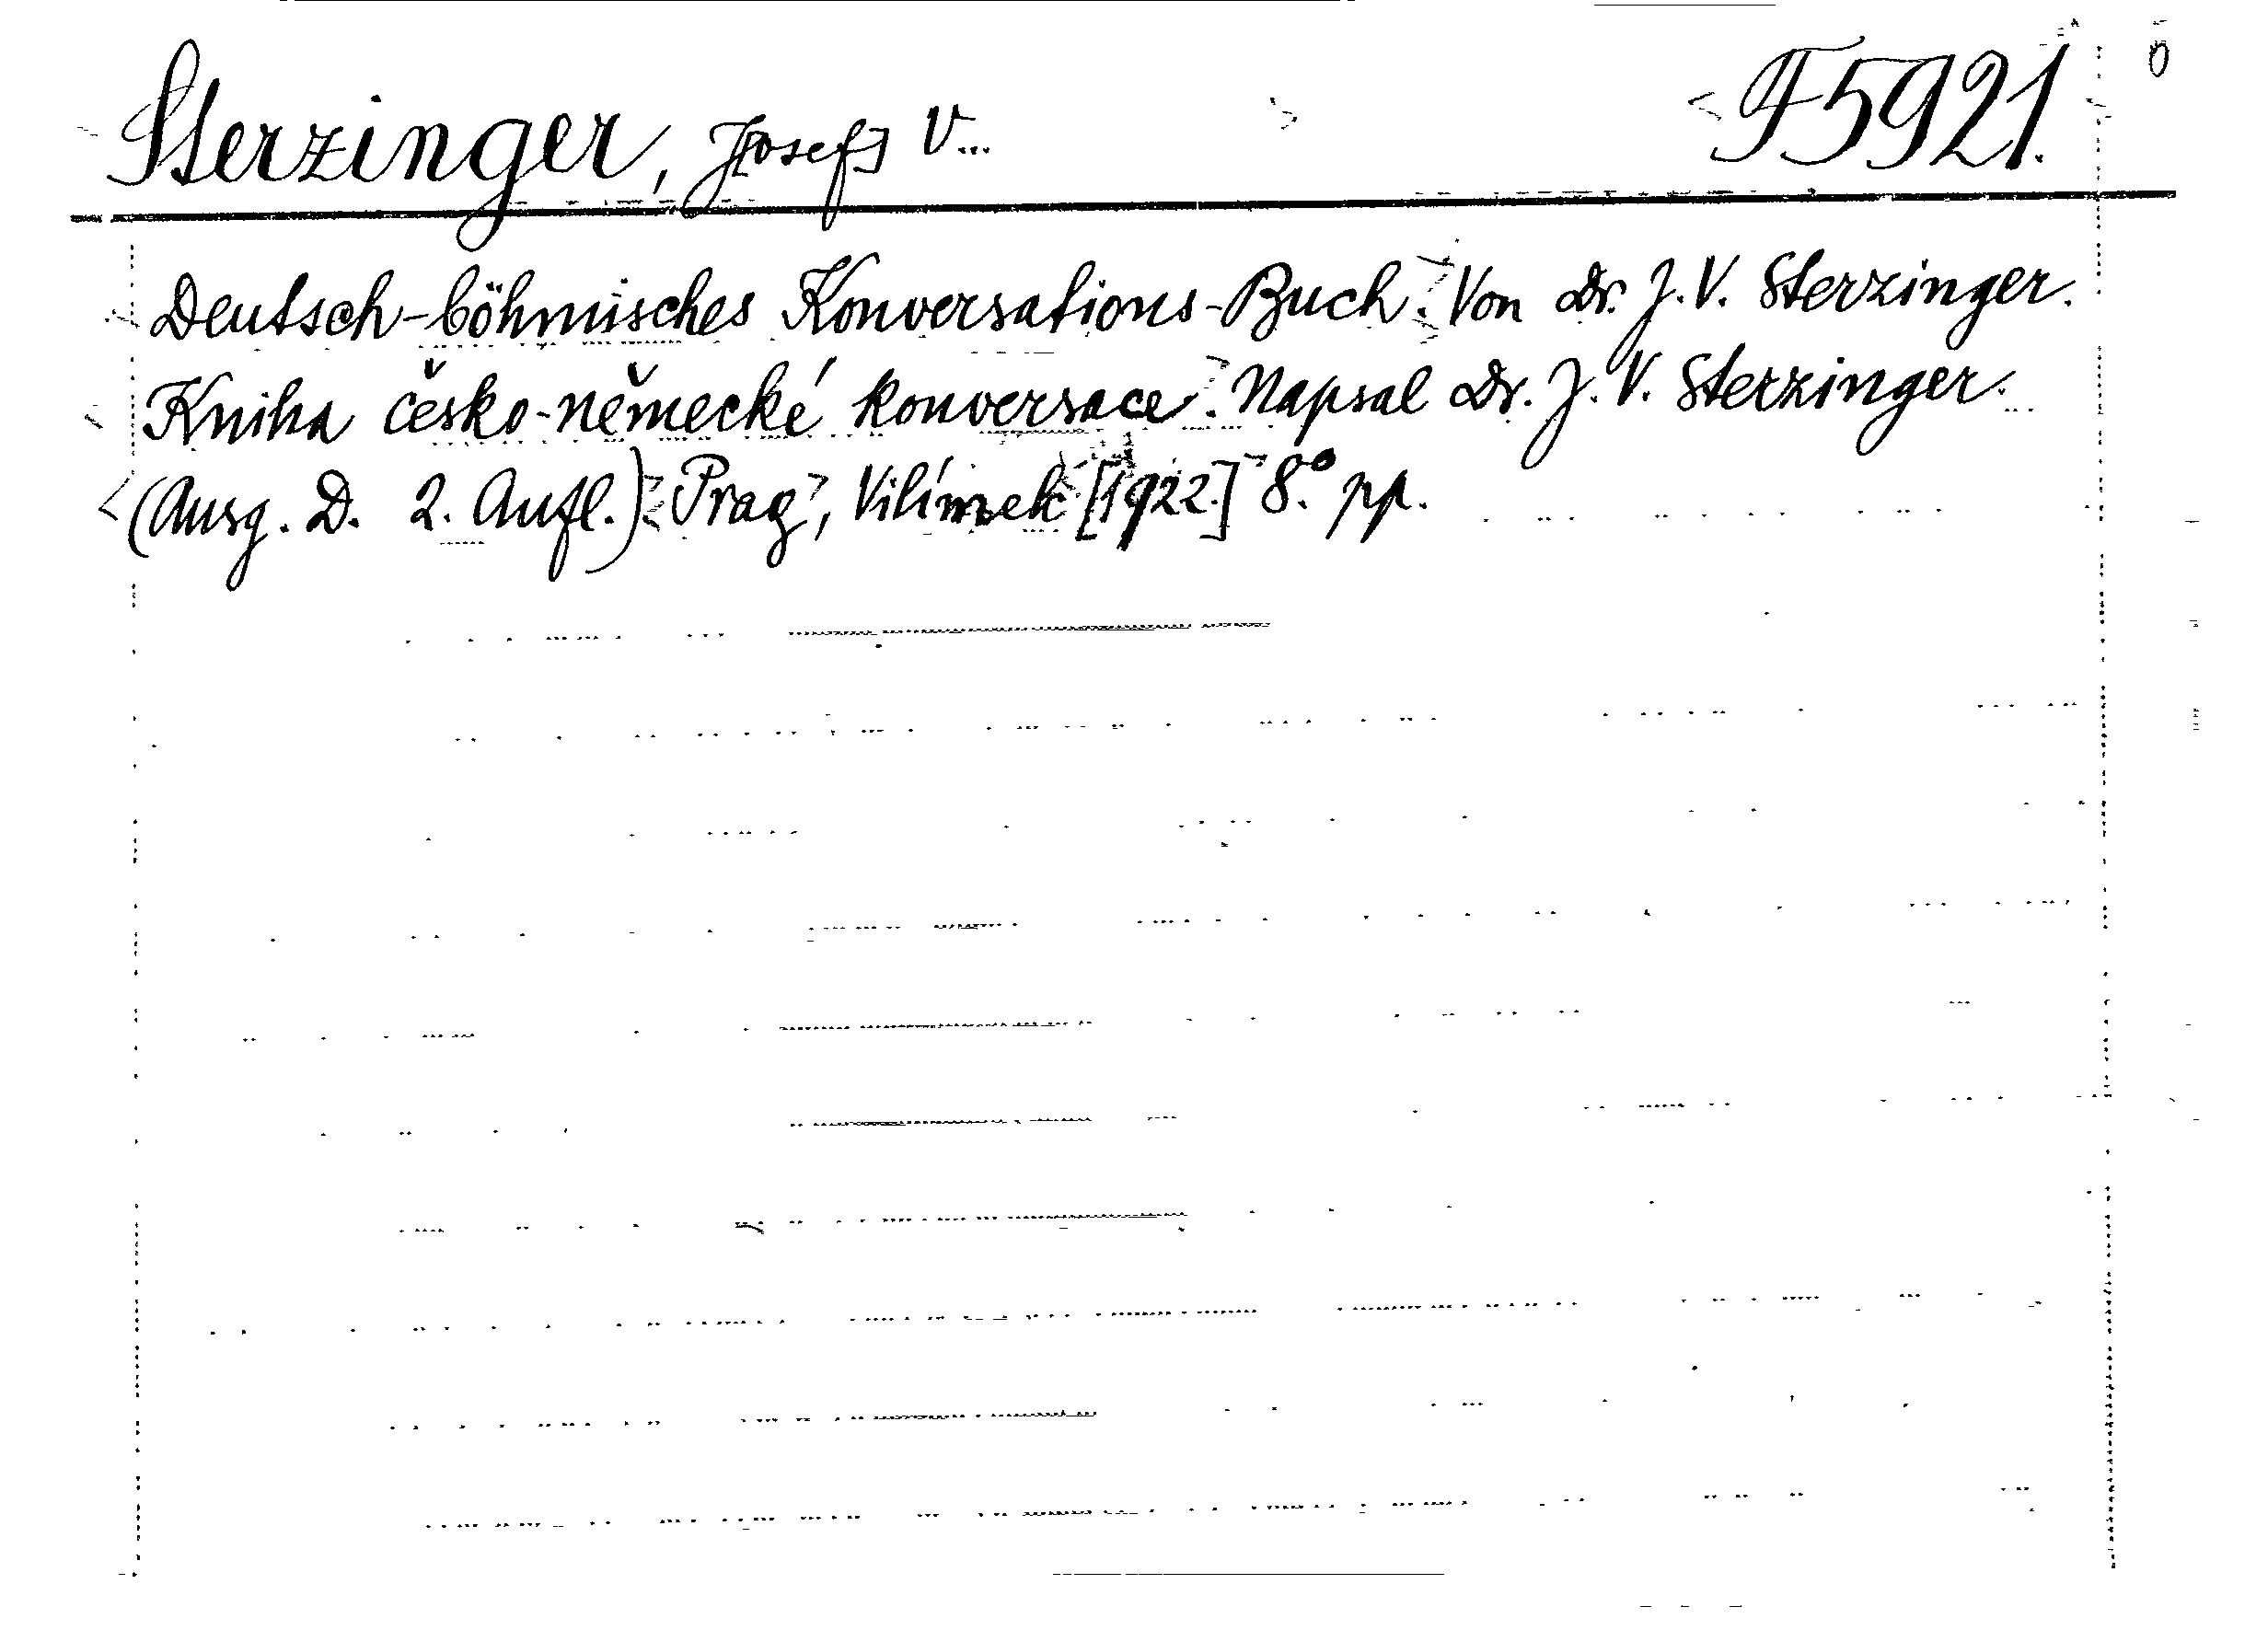 Sterzinger, J[osef] V... F5921.
Deutsch-böhmisches Konversations-Buch. Von Dr. J. V. Sterzinger.
Kniha česko-německé konversace. Napsal Dr. J. V. Sterzinger.
(Ausg. D. 2. Aufl.) Prag, Vilímek [1922.] 8.° pp.